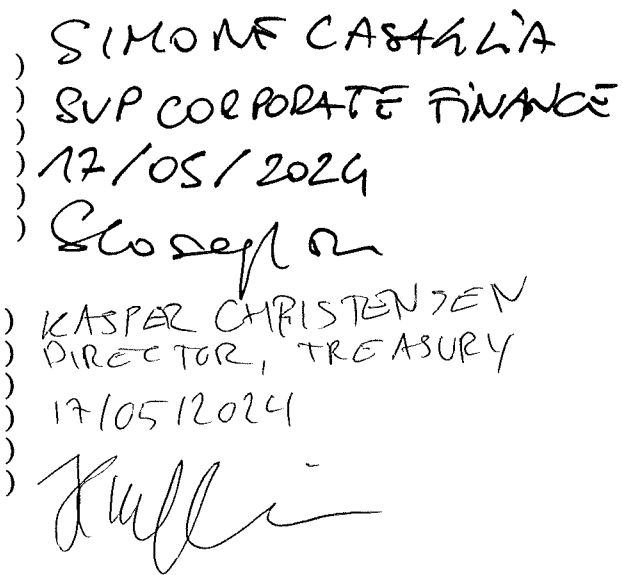 SIMONE CASAGLIA
SVP CORPORATE FINANCE
17/05/2024
KASPER CHRISTENSEN
DIRECTOR, TREASURY
17/05/2024